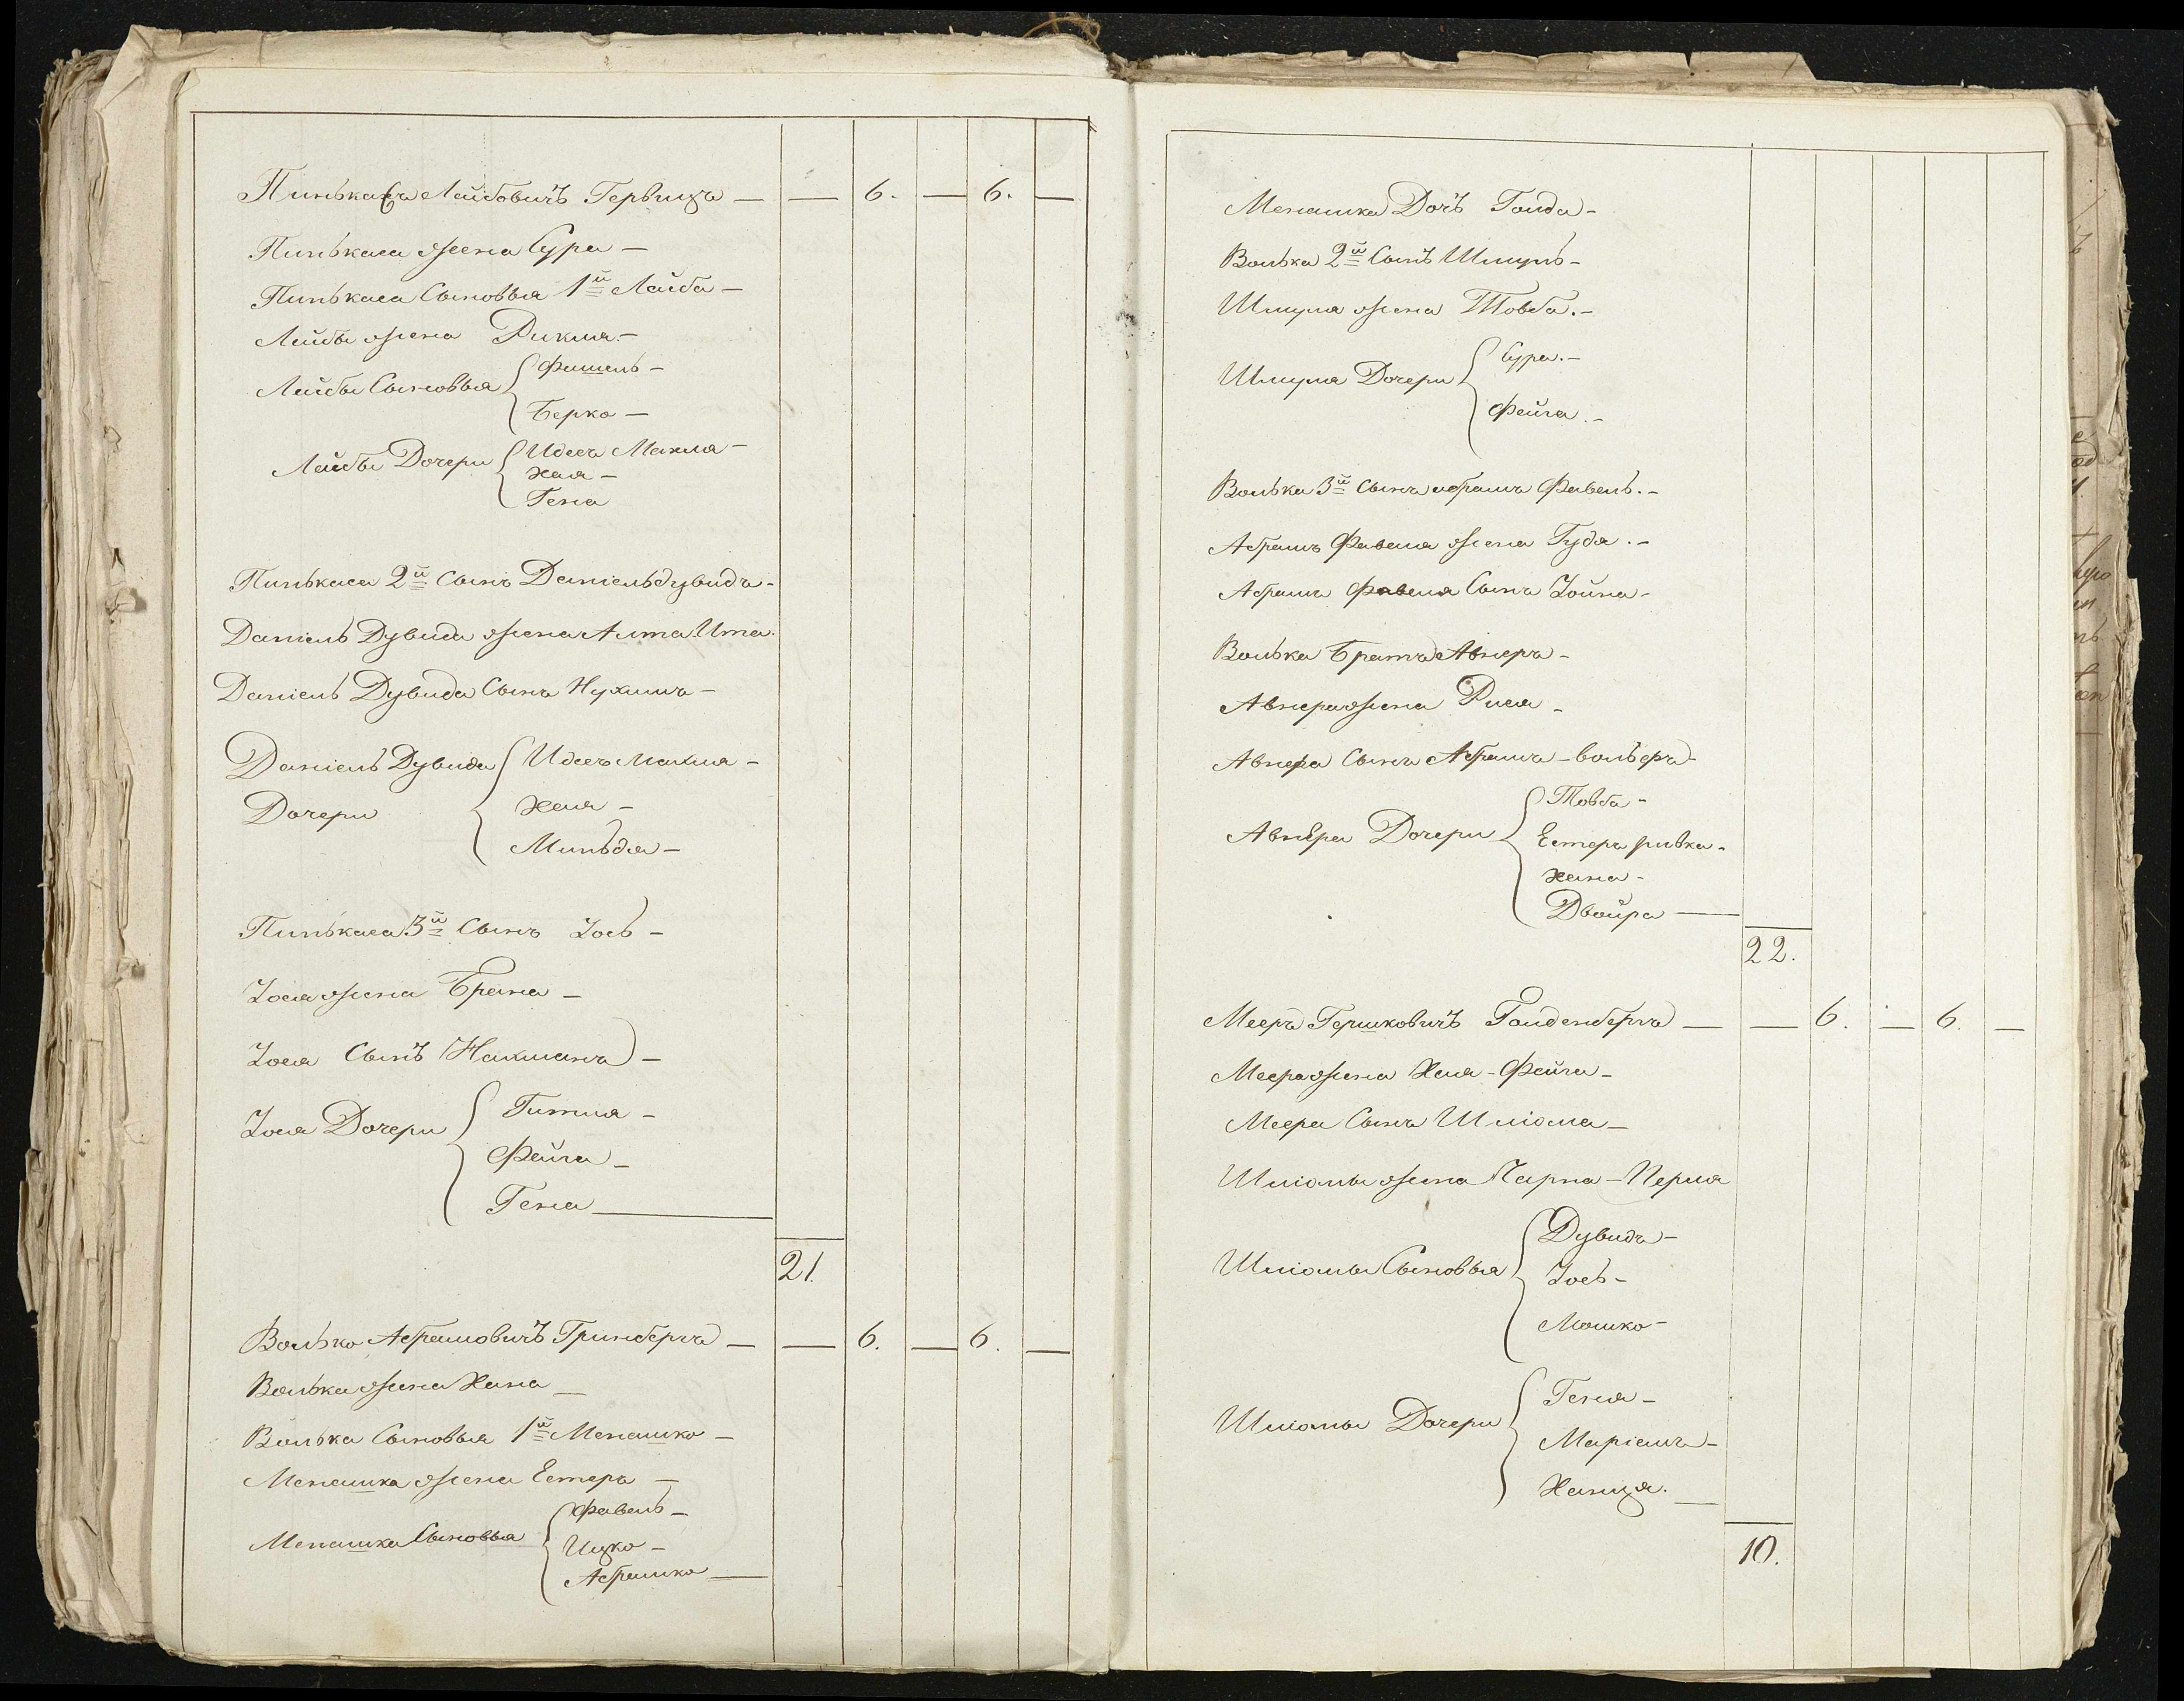 Пинькасъ Лейбовичъ Гервицъ — — 6. — 6. —
Пинькаса жена Сура —
Пинькаса Сыновья 1й Лейба —
Лейбы жена Рикля. —
Лейбы Сыновья Фишель —
Берко —
Лейбы Дочери Идесъ Махля —
Хая —
Геня
Пинькаса 2й Сынъ Даніельдувидъ. -
Даніель Дувида жена Алта Ита.
Даніель Дувида Сынъ Нухимъ —
Даніель Дувида Дочери Идесъ Махля —
Хая —
Миньдя —
Пинькаса 3й Сынъ Іось —
Іося жена Брана —
Іося Сынъ Нахманъ —
Іося Дочери Гитля —
Фейга —
Геня —
21.
Волько Абрамовичъ Гринбергъ — — 6. — 6. —
Волька жена Хана —
Волька Сыновья 1й Менашко —
Менашка жена Естеръ —
Менашка Сыновья Фавель —
Ицко —
Абрашко —
Менашка Дочь Голда -
Волька 2й Сынъ Шмуль -
Шмуля жена Товба. -
Шмуля Дочери Сура. —
Фейга. -
Волька 3й Сынъ абрамъ Фавель. -
Абрамъ Фавеля жена Гудя. -
Абрамъ Фавеля Сынъ Іойна -
Волька Братъ Авнеръ -
Авнера жена Рися -
Авнера Сынъ Абрамъ - вольфъ -
Авнера Дочери Товба -
Естеръ ривка -
Хана -
Двойра —
22.
Мееръ Гершковичъ Голденбергъ — — 6. — 6. —
Меера жена Хая - Фейга -
Меера Сынъ Шліома —
Шліомы жена Чарна - Перля
Шліомы Сыновья Дувидъ -
Іось -
Мошко -
Шліомы Дочери Геня -
Маріямъ -
Ханця. —
10.